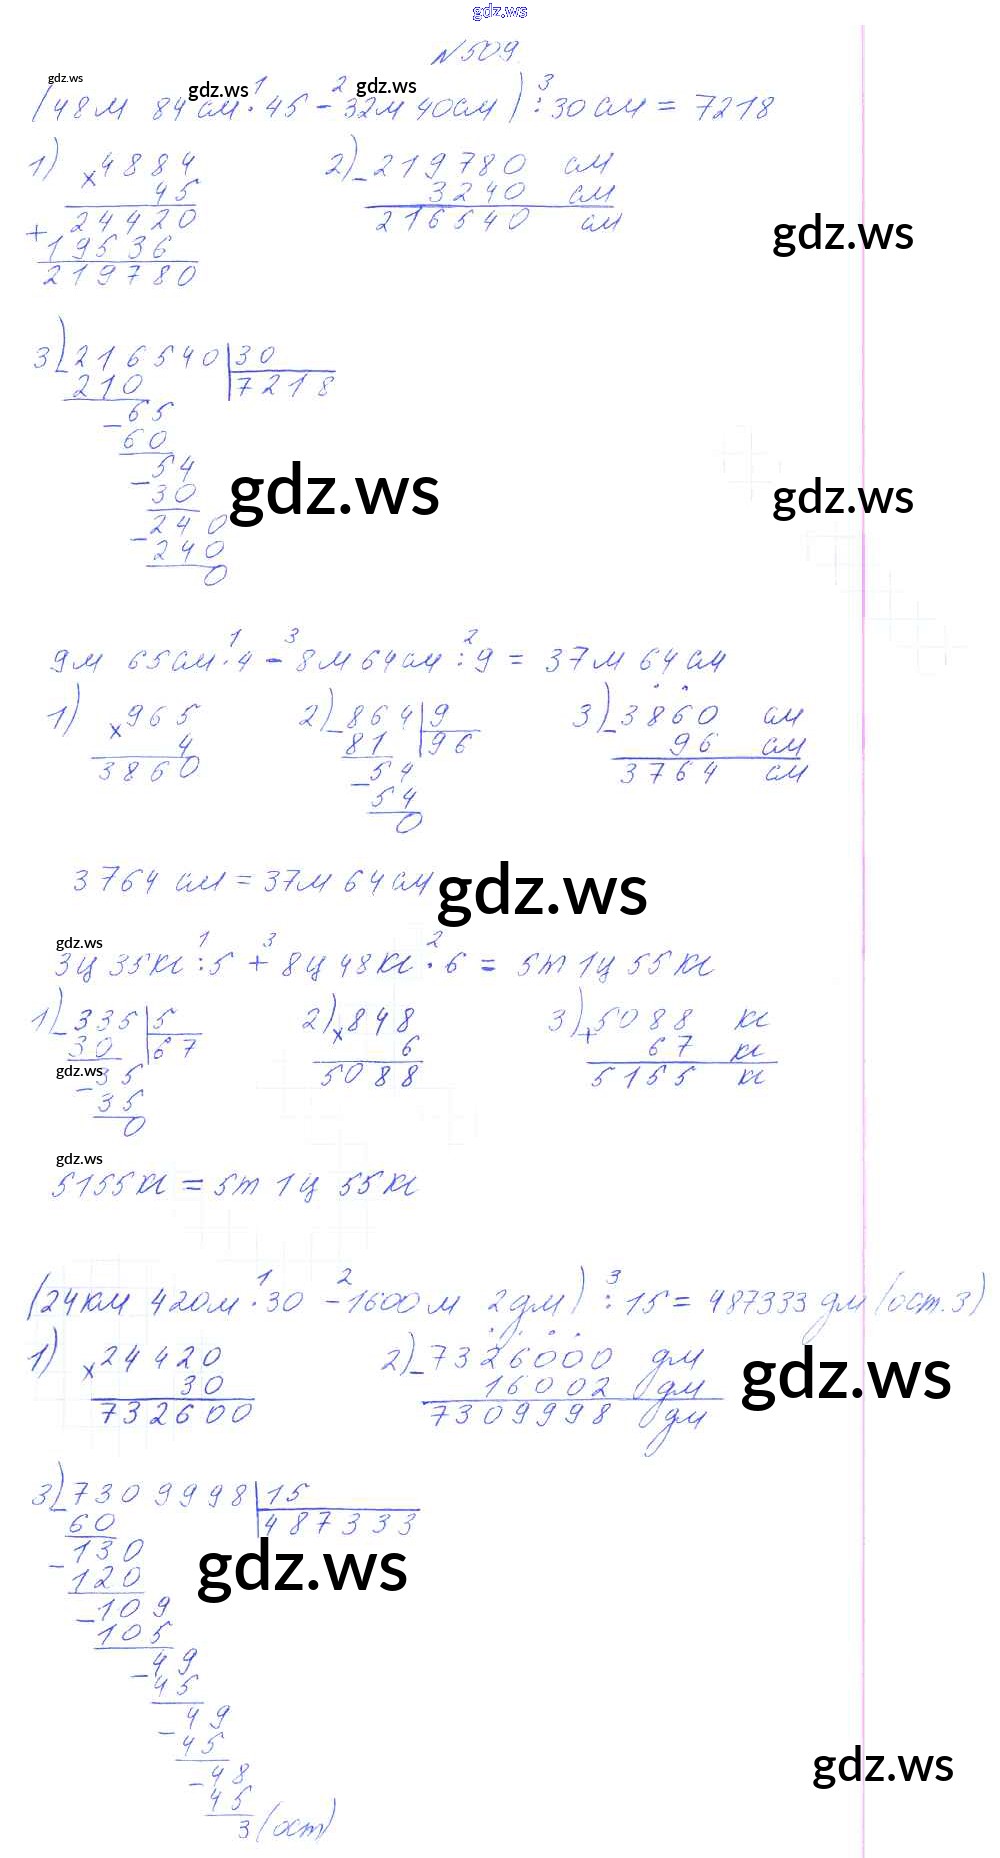 gdz.ws
N 509
gdz.ws gdz.ws gdz.ws
1 2 3
(48м 84см · 45 - 32м 40см) : 30см = 7218
1) × 4884 2) - 219780 см
45 3240 см
24420 216540 см
+ 19536 gdz.ws
219780
3) - 216540 | 30
210 7218
- 65
60
- 54 gdz.ws gdz.ws
30
- 240
240
0
1 3 2
9м 65см · 4 - 8м 64см : 9 = 37м 64см
1) × 965 2) - 864 | 9 3) - 3860 см
4 81 96 96 см
3860 - 54 3764 см
54
0
3764 см = 37м 64см gdz.ws
gdz.ws 1 3 2
3ц 35кг : 5 + 8ц 48кг · 6 = 5т 1ц 55кг
1) - 335 | 5 2) × 848 3) + 5088 кг
30 67 6 67 кг
gdz.ws - 35 5088 5155 кг
35
0
gdz.ws
5155кг = 5т 1ц 55кг
1 2 3
(24км 420м · 30 - 1600м 2дм) : 15 = 487333 дм (ост. 3)
1) × 24420 2) - 7326000 дм
30 16002 дм gdz.ws
732600 7309998 дм
3) - 7309998 | 15
60 487333
- 130 gdz.ws
120
- 109
105
- 49
45
- 49
45
- 48 gdz.ws
45
3 (ост)